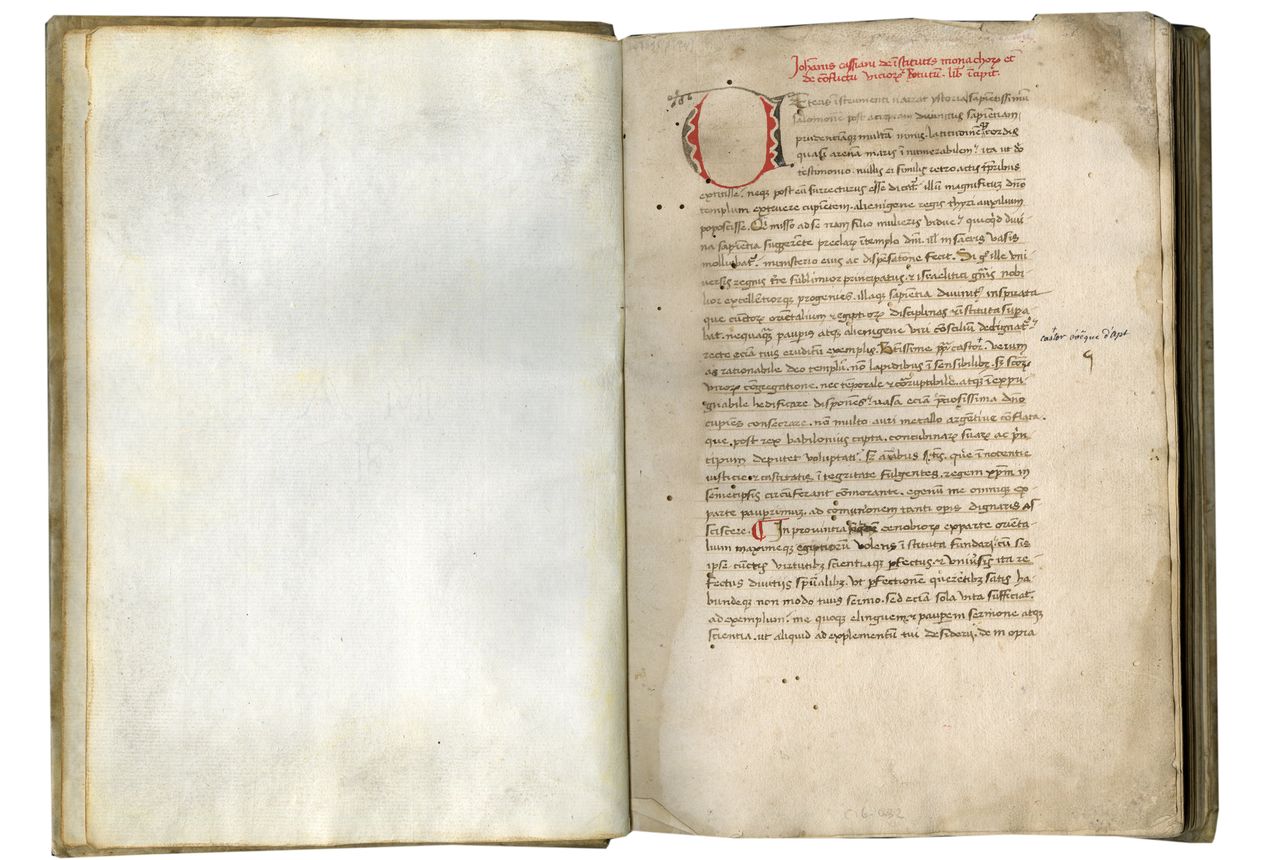 Johannis cassiani de istitutis monachorꝫ et
de cõflictu viciorꝫ & virtutũ. lib' icipit.
Veteris istrumenti narrat ystoria sapientissimũ
salomone post acceptam divinitus sapienciam
prudenciãque multãm nimis. latitudinẽ cordis
quasi arena maris inumerabilem. ita ut dño
testimonio. nullus ei similis retro actis tẽporibus
extitisse. neqꝫ post eũ surrecturus esse dicat'. illũ magnificũ dño
templum extruere cupientem. alienigene regis thyri auxilium
poposcisse. Et misso ad se iram filio mulieris vidue. quicqd divi
na sapientia suggerẽte preclarꝫ i templo dñi. ill' in sacris vasis
moliebat'. ministerio eius ac dispẽsatione fecit. Si gº ille uni
versis regnis t're sublimior principatus. & israelitici gñis nobi-
lior excellẽtiorqꝫ progenies. illaqꝫ sapientia divinitꝰ inspirata
que cũctorꝫ oriẽtalium & egiptiorꝫ disciplinas & istituta supa
bat. nequaqꝫ paupis atqꝫ alienigene viri cõsilium dedignat'.
recte eciã tuis eruditũ exemplis. Btissime pp castor. verum
ac rationabile deo templũ. nõ lapidibus isensibilibꝫ. sꝫ sctorꝫ
virorꝫ cõgregatione. nec tẽporale & corruptibile. atqꝫ iexpu
gnabile hedificare disponẽs. vasa eciã p̃ciosissima dño
cupiẽs consecrare. nõ multo auri metallo argentive cõflata.
que. post rex babilonius capta. concubinarꝫ suarꝫ ac pñ
cipum deputet voluptati. sꝫ aĩabus sctis. que inocentie
iusticie & castitatis itegritate fulgentes. regem xpm in
semetipsis circũferant cõmorante. egenũ me omniqꝫ ex
parte pauprimuꝫ. ad comunionem tanti opis dignaris as
sciscere. In provintia cenobiorꝫ exparte orienta-
lium maximeqꝫ egiptiorũ volens istituta fundari. cũ sis
ipse cũctis virtutibꝫ scientiaqꝫ pfectus. & univsis ita re
fectus divitiis spũalibꝫ. ut pfectionem querẽtibꝫ satis ha-
bundeqꝫ non modo tuus sermo. sed eciã sola vita sufficiat.
ad exemplum. me quoqꝫ elinguem & paupem sermone atqꝫ
scientia. ut aliquid ad explementũ tui desiderii. de inopia
castor
C16-032